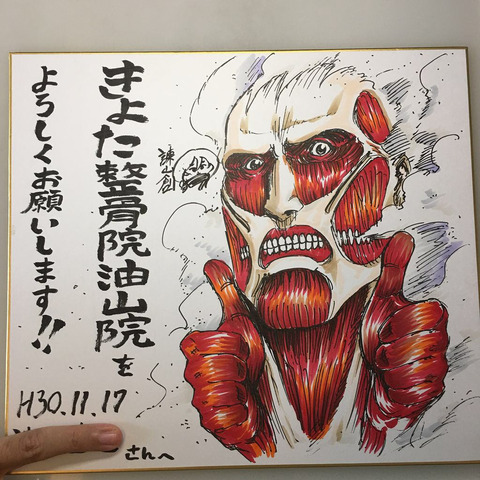 きよた整骨院油山院を
よろしくお願いします!!
諫山創
H30.11.17
さんへ